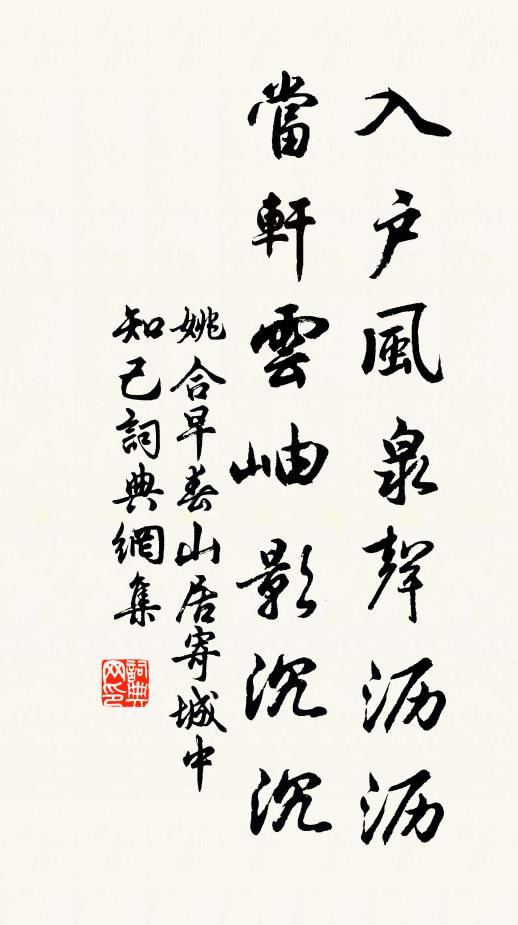 入户風泉聲沥沥
當軒雲岫影沉沉
姚合早春山居寄城中
知己詞典網集
詞典网印